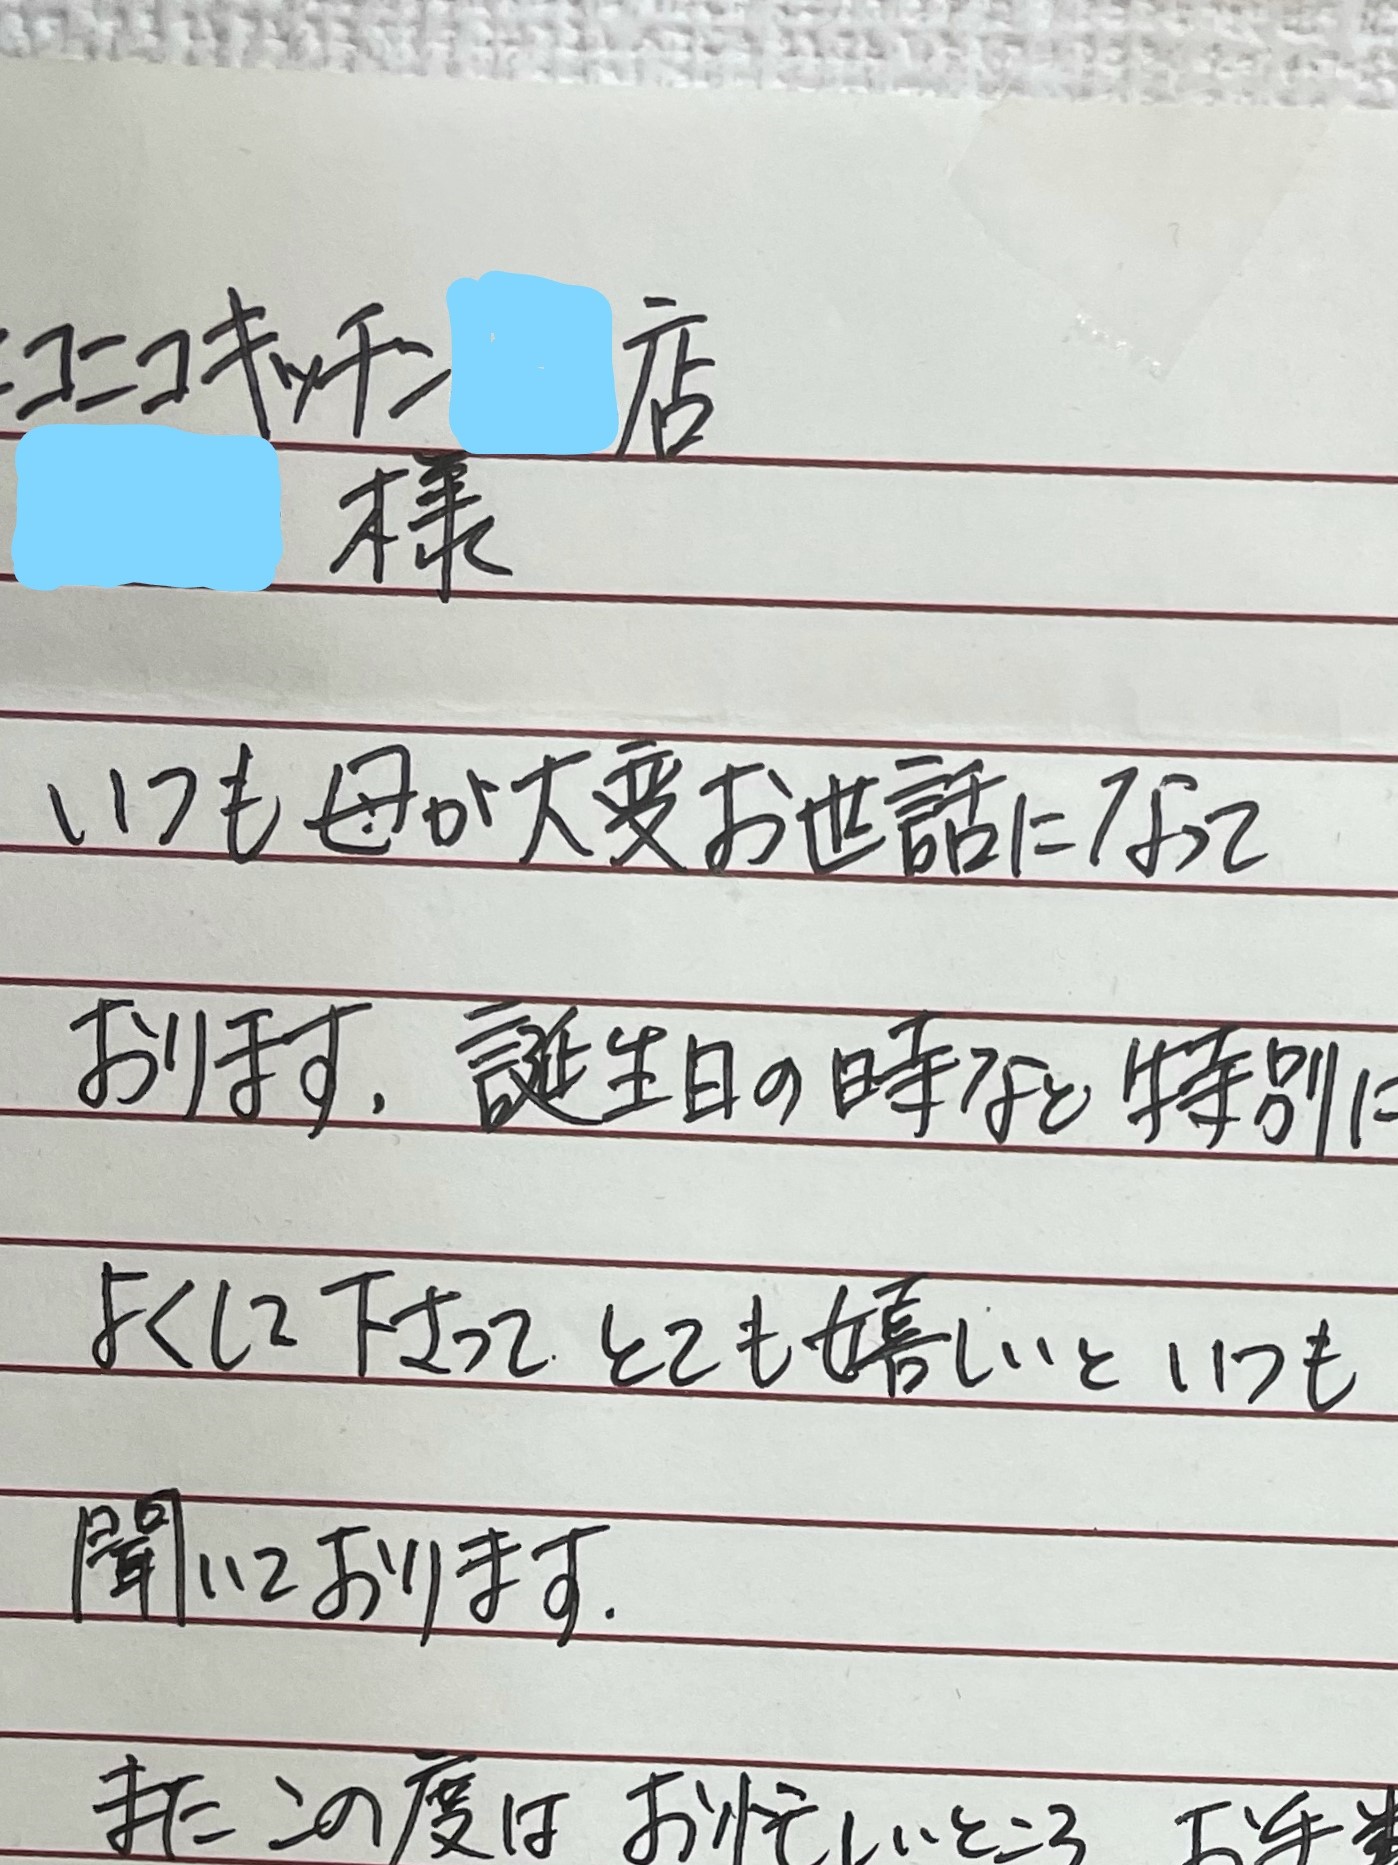 ニコニコキッチン 店
様
いつも母が大変お世話になって
おります.誕生日の時など特別に
よくして下さって とても嬉しいと いつも
聞いております.
また この度は お忙しいところ お手数